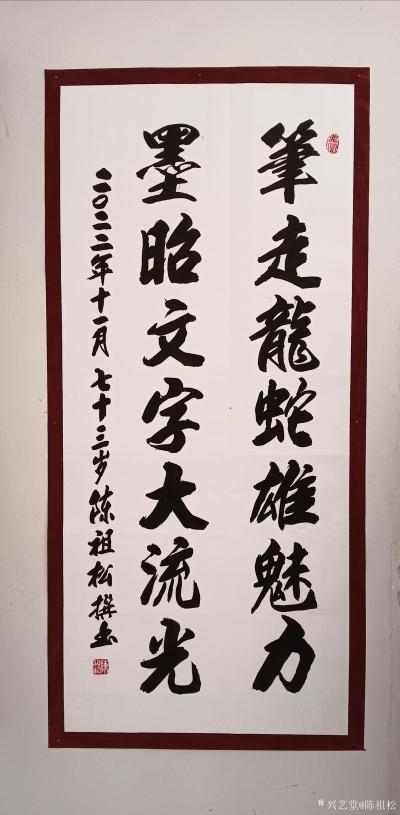 筆走龍蛇雄魅力
墨昭文字大流光
二〇二二年十一月七十三岁陈祖松撰书
兴艺堂@陈祖松